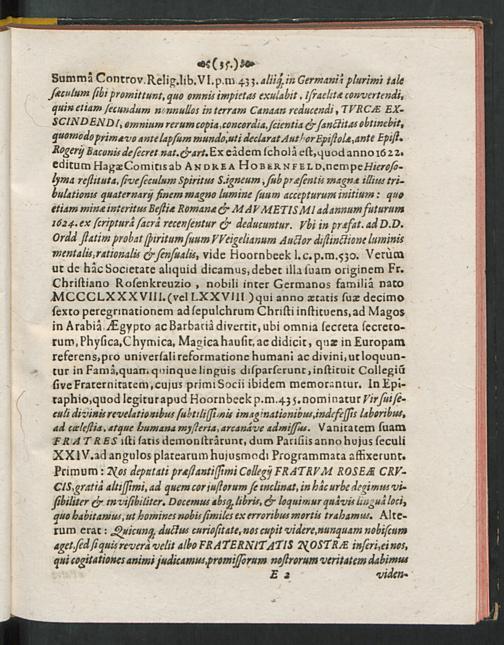 (35.)
Summâ Controv. Relig. lib. VI. p. m. 433. aliiq́, in Germaniâ plurimi tale
sæculum sibi promittunt, quo omnis impietas exulabit, Israelitæ convertendi,
quin etiam secundum nonnullos in terram Canaan reducendi, TVRCÆ EX-
SCINDENDI, omnium rerum copia, concordia, scientia & sanctitas obtinebit,
quomodo primævo ante lapsum mundo, uti declarat Author Epistolæ, ante Epist.
Rogerij Baconis de secret nat. & art. Ex eâdem scholâ est, quod anno 1622.
editum Hagæ Comitis ab ANDREA HOBERNFELD, nempe Hieroso-
lyma restituta, sive seculum Spiritus S. igneum, sub præsentis magnæ illius tri-
bulationis quaternarij finem magno lumine suum accepturum initium: quo
etiam minæ interitus Bestiæ Romanæ & MAVMETISMI ad annum futurum
1624. ex scripturâ sacrâ recensentur & deducuntur. Vbi in præfat. ad D.D.
Ordd statim probat spiritum suum VVeigelianum Auctor distinctione luminis
mentalis, rationalis & sensualis, vide Hoornbeek l. c. p. m. 530. Verùm
ut de hâc Societate aliquid dicamus, debet illa suam originem Fr.
Christiano Rosenkreuzio, nobili inter Germanos familiâ nato
MCCCLXXXVIII. (vel LXXVIII) qui anno ætatis suæ decimo
sexto peregrinationem ad sepulchrum Christi instituens, ad Magos
in Arabiâ Ægypto ac Barbariâ divertit, ubi omnia secreta secreto-
rum, Physica, Chymica, Magica hausit, ac didicit, quæ in Europam
referens, pro universali reformatione humani ac divini, ut loquun-
tur in Famâ, quam quinque linguis disparserunt, instituit Collegiũ
sive Fraternitatem, cujus primi Socii ibidem memorantur. In Epi-
taphio, quod legitur apud Hoornbeek p. m. 435. nominatur Vir sui se-
culi divinis revelationibus subtilissimis imaginationibus, indefessis laboribus,
ad cœlestia, atque humana mysteria, arcanáve admissus. Vanitatem suam
FRATRES isti satis demonstrârunt, dum Parisiis anno hujus seculi
XXIV. ad angulos platearum hujusmodi Programmata affixerunt.
Primum: Nos deputati præstantissimi Collegij FRATRVM ROSEÆ CRV-
CIS, gratiâ altissimi, ad quem cor justorum se inclinat, in hâc urbe degimus vi-
sibiliter & invisibiliter. Docemus absq́, libris, & loquimur quâvis linguâ loci,
quo habitamus, ut homines nobis similes ex erroribus mortis trahamus. Alte-
rum erat: Quicunq́, ductus curiositate, nos cupit videre, nunquam nobiscum
aget, sed si quis reverâ velit albo FRATERNITATIS NOSTRÆ inseri, ei nos,
qui cogitationes animi judicamus, promissorum nostrorum veritatem dabimus
E 2 viden-